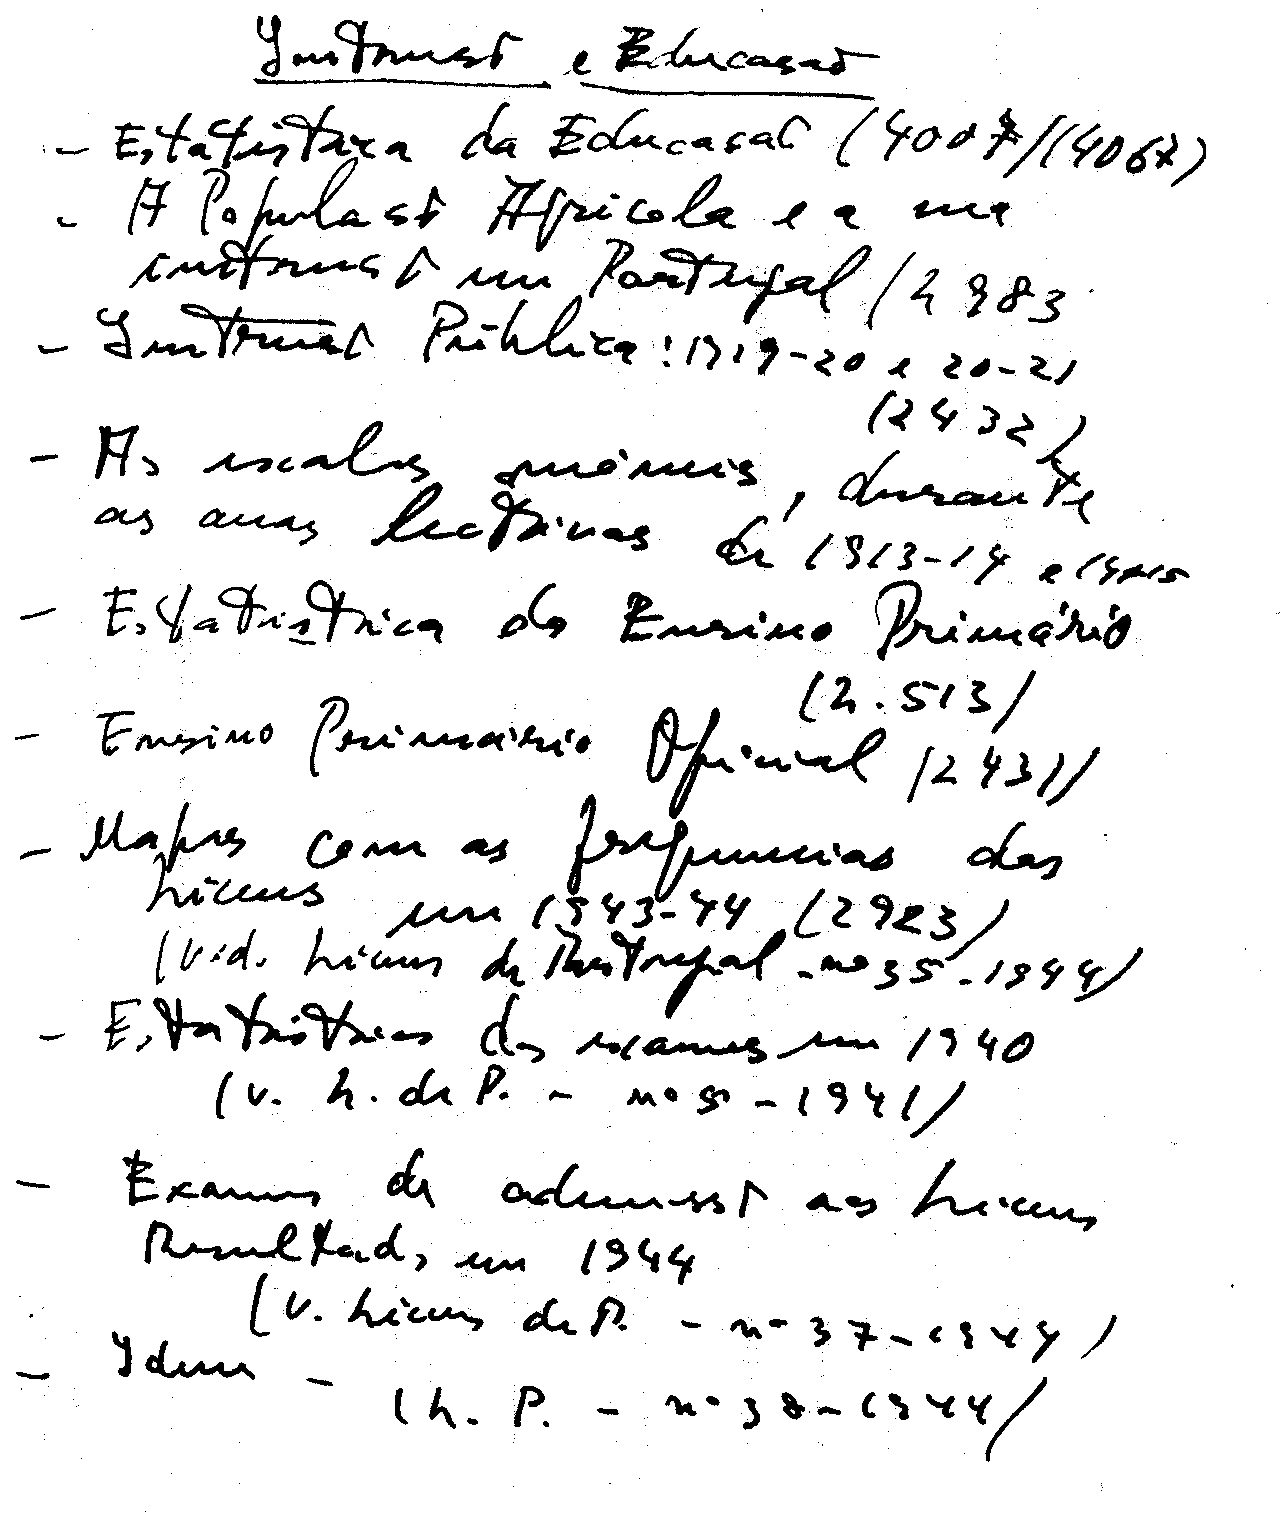 Instrução e Educação
- Estatística da Educação (4007/(4067)
- A População Agrícola e a sua
instrução em Portugal (2983
- Instrução Pública: 1919-20 e 20-21
(2432)
- As escolas móveis, durante
os anos lectivos de 1913-14 e 1914-15
- Estatística do Ensino Primário
(2.513)
- Ensino Primário Oficial (2431)
- Mapas com as frequências dos
Liceus em 1943-44 (2923)
(vid. Liceus de Portugal - nº 35 - 1944)
- Estatísticas dos exames em 1940
(v. L. de P. - nº - 1941)
- Exames de admissão aos Liceus
Resultados em 1944
(v. Liceus de P. - nº 37 - 1944)
- Idem -
(L. P. - nº 38 - 1944)